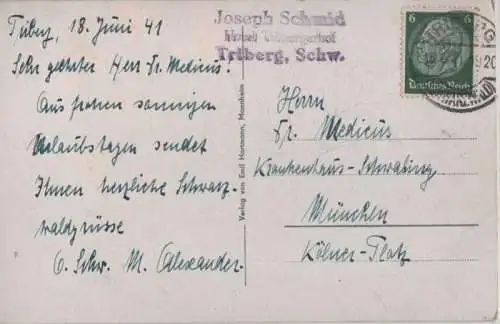 Triberg, 18. Juni 41
Sehr geehrter Herr Dr. Medicus!
Aus frohen sonnigen
Urlaubstagen sendet
Ihnen herzliche Schwarz-
waldgrüsse
O. Schw. M. Alexander.
Verlag von Emil Hartmann, Mannheim
Joseph Schmid
Triberg, Schw.
6 6
Deutsches Reich
Herrn
Dr. Medicus
Krankenhaus-Schwabing
München
Kölner-Platz